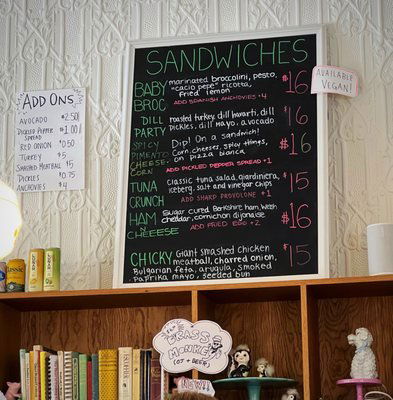 SANDWICHES
BABY
BROC
marinated broccolini, pesto,
"cacio pepe" ricotta,
fried lemon
$16
ADD SPANISH ANCHOVIES +4
AVAILABLE
VEGAN!
DILL
PARTY
roasted turkey, dill havarti, dill
pickles, dill mayo, avocado
$16
SPICY
PIMENTO
CHEESE
CORN
Dip! On a sandwich!
Corn, cheeses, spicy things,
on pizza bianca
$16
ADD PICKLED PEPPER SPREAD +1
TUNA
CRUNCH
classic tuna salad, giardiniera,
iceberg, salt and vinegar chips
$15
ADD SHARP PROVOLONE +1
HAM
N CHEESE
Sugar cured Berkshire ham, Welsh
cheddar, cornichon dijonaise
$16
ADD FRIED EGG +2
CHICKY
Giant smashed chicken
meatball, charred onion,
Bulgarian feta, arugula, smoked
paprika mayo, seeded bun
$15
ADD ONS
AVOCADO $2.50
PICKLED PEPPER
SPREAD $1.00
RED ONION $0.50
TURKEY $5
SMASHED MEATBALL $5
PICKLES $0.75
ANCHOVIES $4
BRASS
MONKEY
(OT + BEER)
NEW!